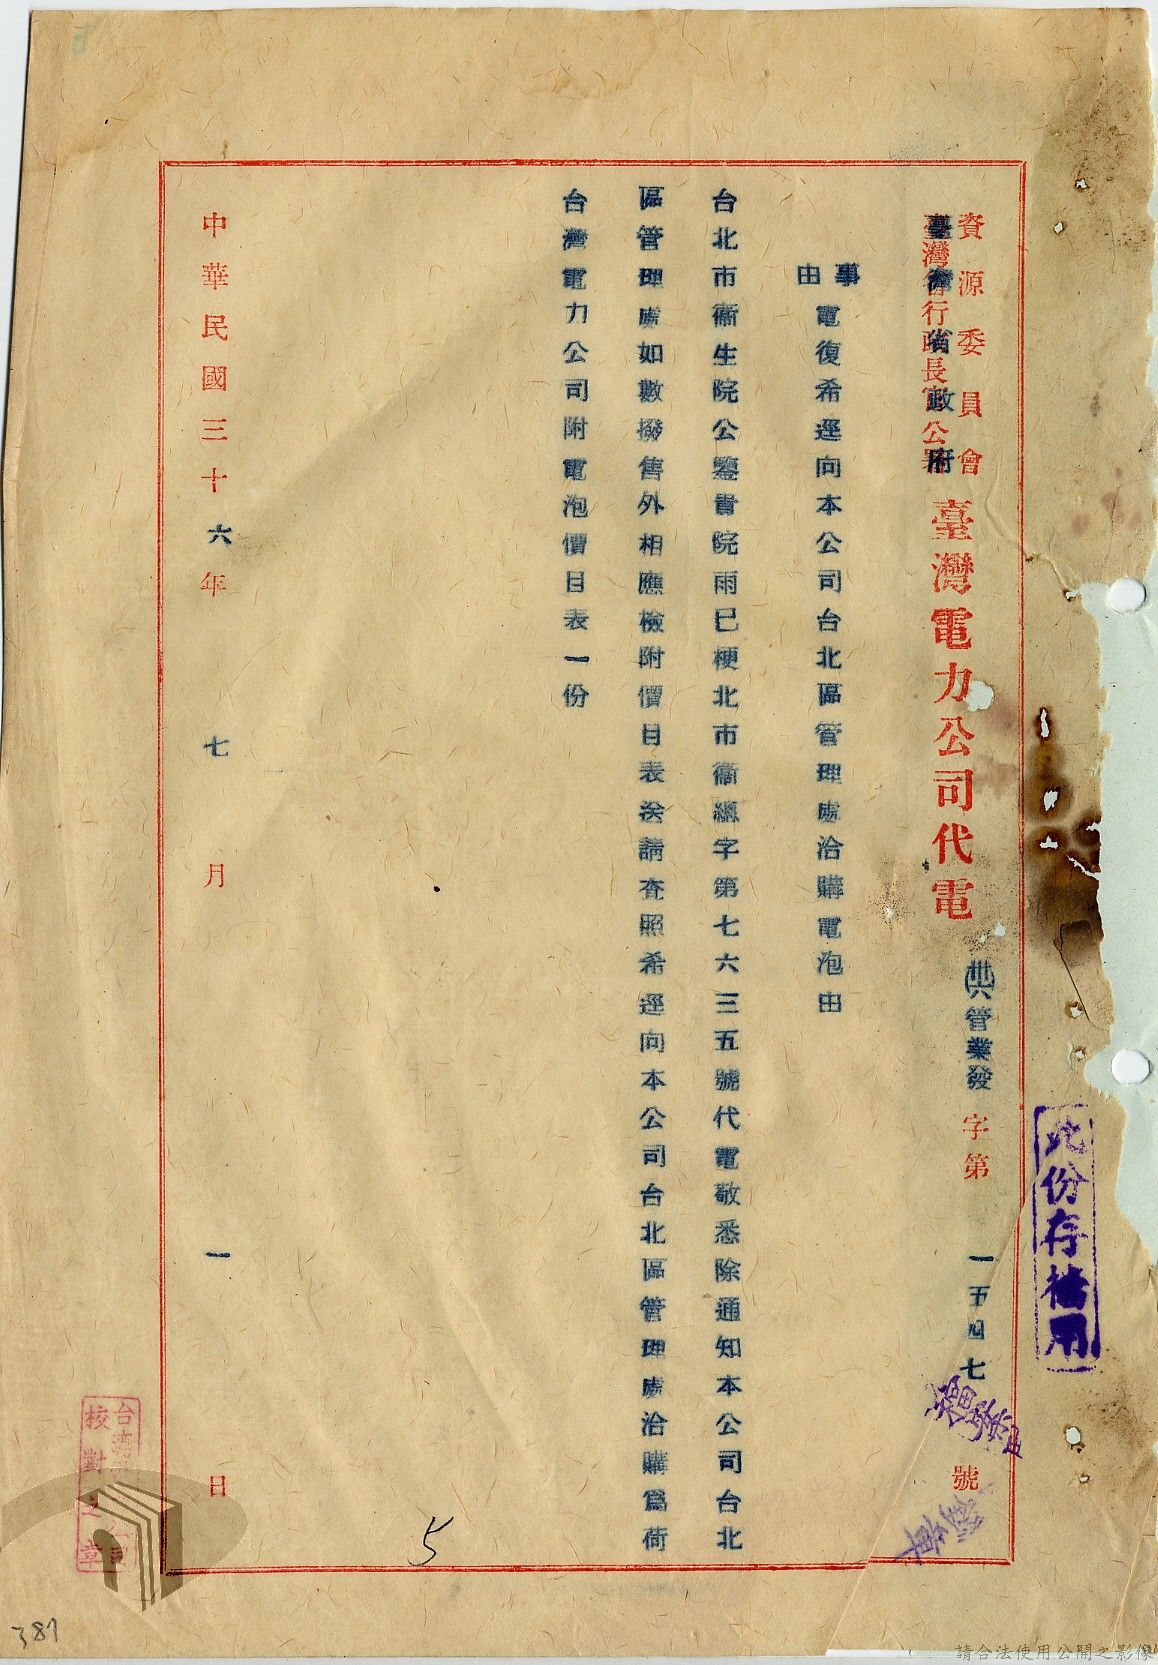 資源委員會
臺灣省政府
臺灣電力公司代電
卅六管業發字第一五四七號
事由 電復希逕向本公司台北區管理處洽購電泡由
台北市衞生院公鑒貴院雨巳梗北市衞總字第七六三五號代電敬悉除通知本公司台北
區管理處如數撥售外相應檢附價目表送請查照希逕向本公司台北區管理處洽購爲荷
台灣電力公司附電泡價目表一份
中華民國三十六年七月一日
此份存檔用
校對之章
5
387
請合法使用公開之影像